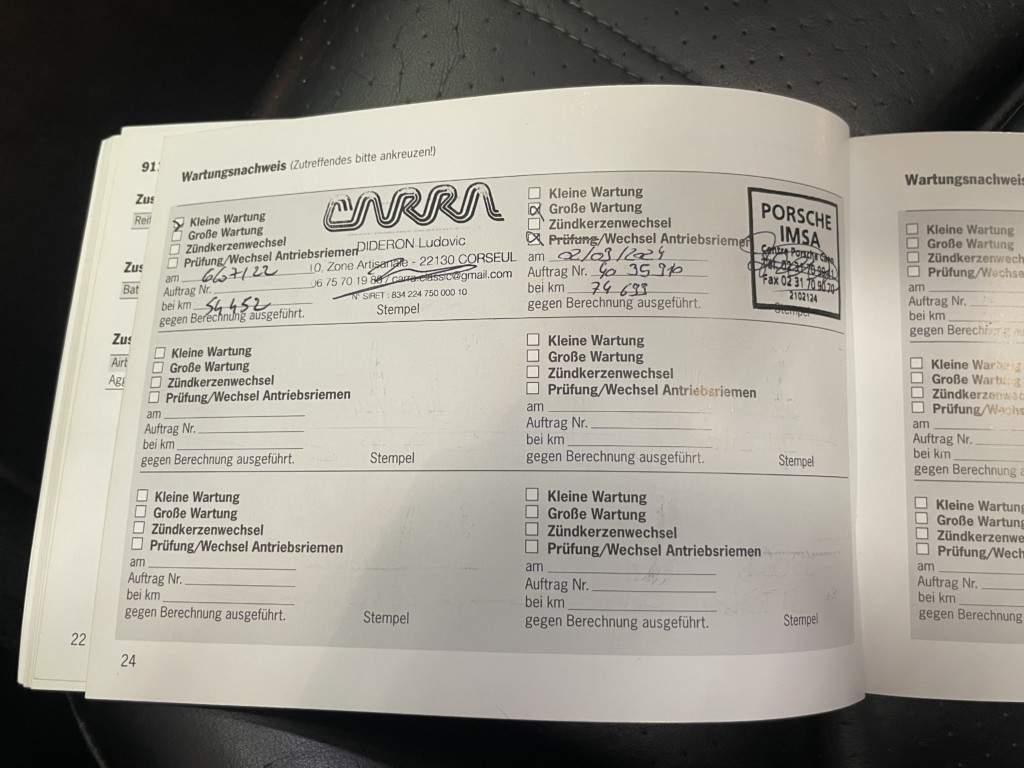 Wartungsnachweis (Zutreffendes bitte ankreuzen!)
Kleine Wartung
Große Wartung
Zündkerzenwechsel
Prüfung/Wechsel Antriebsriemen
am 6/07/22
Auftrag Nr.
bei km 54 452
gegen Berechnung ausgeführt.
CARRA
DIDERON Ludovic
10, Zone Artisanale - 22130 CORSEUL
06 75 70 19 88 / carra.classic@gmail.com
N° SIRET : 834 224 750 000 10
Stempel
Kleine Wartung
Große Wartung
Zündkerzenwechsel
Prüfung/Wechsel Antriebsriemen
am 02/09/2024
Auftrag Nr. 40 35 910
bei km 74 699
gegen Berechnung ausgeführt.
PORSCHE
IMSA
Centre Porsche Caen
Fax 02 31 70 90 20
2102124
Stempel
Kleine Wartung
Große Wartung
Zündkerzenwechsel
Prüfung/Wechsel Antriebsriemen
am
Auftrag Nr.
bei km
gegen Berechnung ausgeführt.
Stempel
Kleine Wartung
Große Wartung
Zündkerzenwechsel
Prüfung/Wechsel Antriebsriemen
am
Auftrag Nr.
bei km
gegen Berechnung ausgeführt.
Stempel
Kleine Wartung
Große Wartung
Zündkerzenwechsel
Prüfung/Wechsel Antriebsriemen
am
Auftrag Nr.
bei km
gegen Berechnung ausgeführt.
Stempel
Kleine Wartung
Große Wartung
Zündkerzenwechsel
Prüfung/Wechsel Antriebsriemen
am
Auftrag Nr.
bei km
gegen Berechnung ausgeführt.
Stempel
24
911
Zus
Reif
Zus
Bat
Zus
Airb
Agg
22
Wartungsnachweis
Kleine Wartung
Große Wartung
Zündkerzenwechs
Prüfung/Wechse
am
Auftrag Nr.
bei km
gegen Berechnung
Kleine Wartung
Große Wartung
Zündkerzenwec
Prüfung/Wechs
am
Auftrag Nr.
bei km
gegen Berechnung
Kleine Wartung
Große Wartung
Zündkerzenwe
Prüfung/Wech
am
Auftrag Nr.
bei km
gegen Berechnung